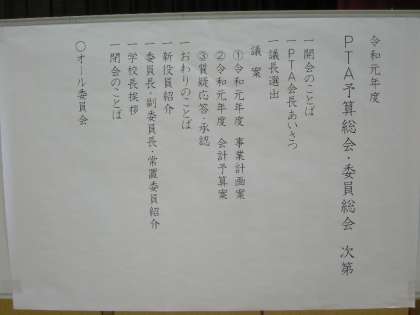 令和元年度
PTA予算総会・委員総会 次第
一開会のことば
一PTA会長あいさつ
一議長選出
議案
①令和元年度 事業計画案
②令和元年度 会計予算案
③質疑応答・承認
一おわりのことば
一新役員紹介
一委員長・副委員長・常置委員紹介
一学校長挨拶
一閉会のことば
〇オール委員会